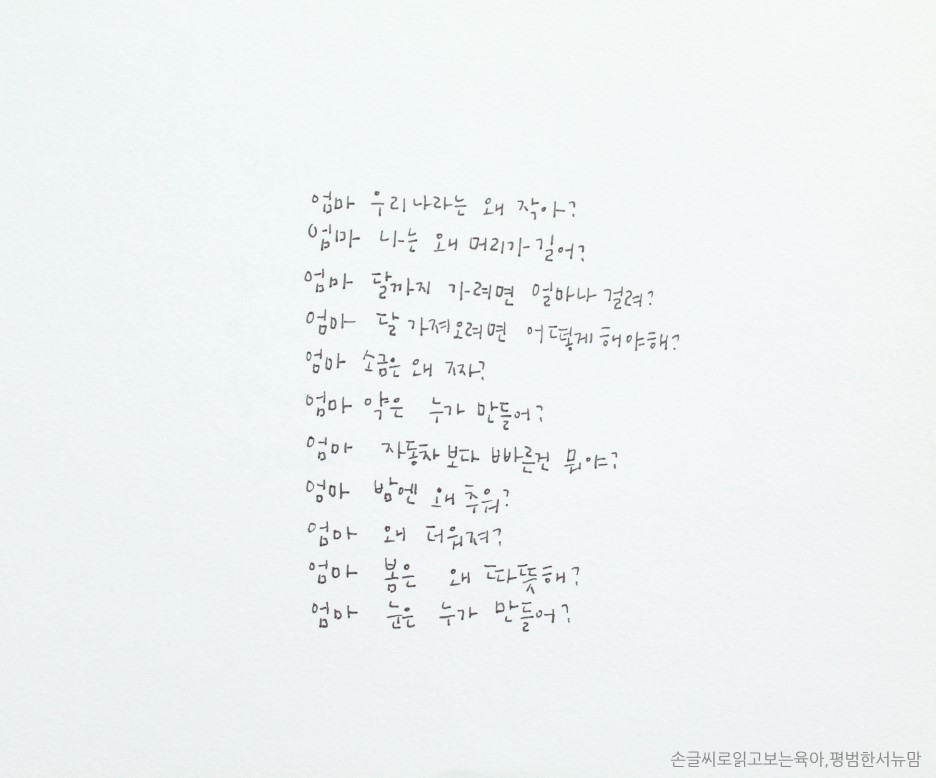 엄마 우리나라는 왜 작아?
엄마 나는 왜 머리가 길어?
엄마 달까지 가려면 얼마나 걸려?
엄마 달 가져오려면 어떻게 해야해?
엄마 소금은 왜 짜?
엄마 약은 누가 만들어?
엄마 자동차보다 빠른건 뭐야?
엄마 밤엔 왜 추워?
엄마 왜 더워져?
엄마 봄은 왜 따뜻해?
엄마 눈은 누가 만들어?
손글씨로읽고보는육아,평범한서뉴맘